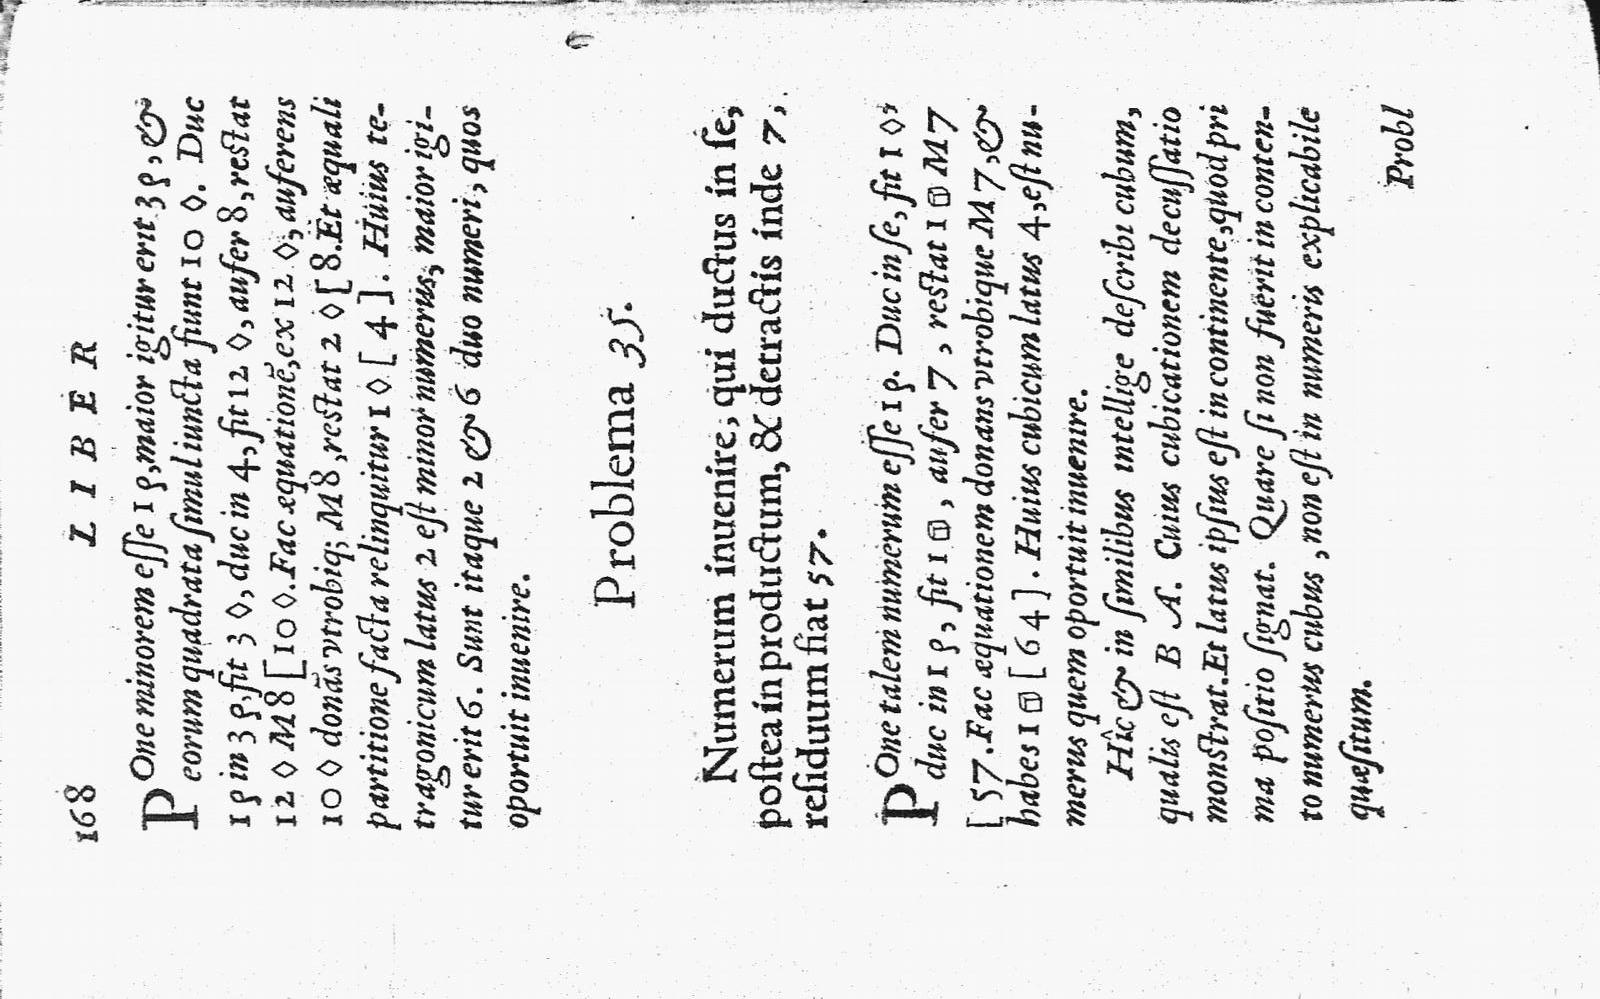 168 LIBER
POne minorem eſſe 1 ρ, maior igitur erit 3 ρ, &
eorum quadrata ſimul iuncta ſunt 10 ◊. Duc
1 ρ in 3 ρ, fit 3 ◊, duc in 4, fit 12 ◊, aufer 8, reſtat
12 ◊ M 8 [ 10 ◊. Fac æquationē, ex 12 ◊, auferens
10 ◊ donās vtrobiq; M 8, reſtat 2 ◊ [ 8. Et æquali
partitione facta relinquitur 1 ◊ [ 4 ]. Huius te-
tragonicum latus 2 eſt minor numerus, maior igi-
tur erit 6. Sunt itaque 2 & 6 duo numeri, quos
oportuit inuenire.
Problema 35.
Numerum inuenire, qui ductus in ſe,
poſtea in productum, & detractis inde 7,
reſiduum fiat 57.
POne talem numerum eſſe 1 ρ. Duc in ſe, fit 1 ◊,
duc in 1 ρ, fit 1 ⌼, aufer 7, reſtat 1 ⌼ M 7
[ 57. Fac æquationem donans vtrobique M 7, &
habes 1 ⌼ [ 64 ]. Huius cubicum latus 4, eſt nu-
merus quem oportuit inuenire.
Hîc & in ſimilibus intellige deſcribi cubum,
qualis eſt B A. Cuius cubicationem decuſſatio
monſtrat. Et latus ipſius eſt in continente, quod pri
ma poſitio ſignat. Quare ſi non fuërit in conten-
to numerus cubus, non eſt in numeris explicabile
quæſitum.
Probl